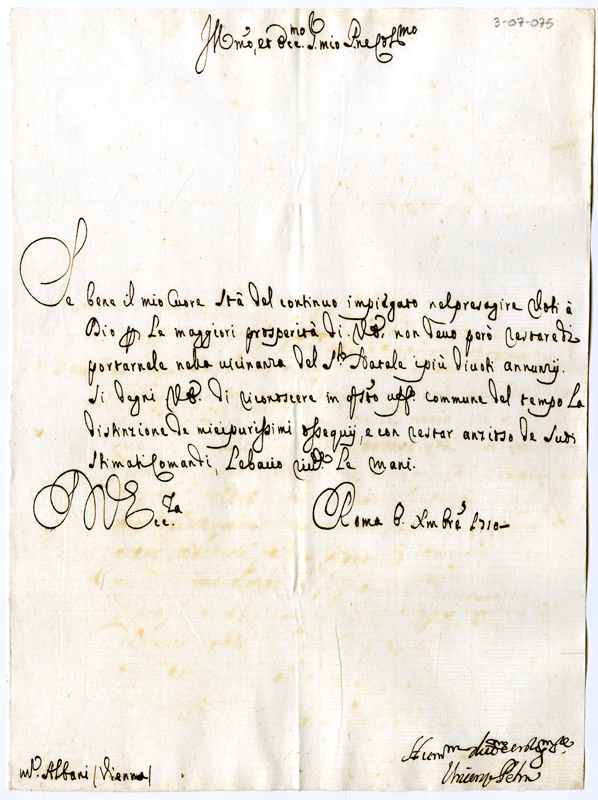 3-07-075
Ill.mo, et Ecc.mo S. mio P.ne Col.mo
Se bene il mio Cuore stà del continuo impiegato nel presagire Voti à
Dio p. Le maggiori prosperità di V.E. non devo però restare di
portarnele nella vicinanza del S.to Natale i più divoti annunzij.
Si degni V.E. di riconoscere in q.sto uff.o commune del tempo La
distinzione de miei purissimi ossequij, e con restar anzioso de suoi
stimati Comandi, Le bacio riv.te Le mani.
V. Ecc.za Roma 6. Xmbre 1710
Hum.mo div.mo
M.r Albani (Vienna)